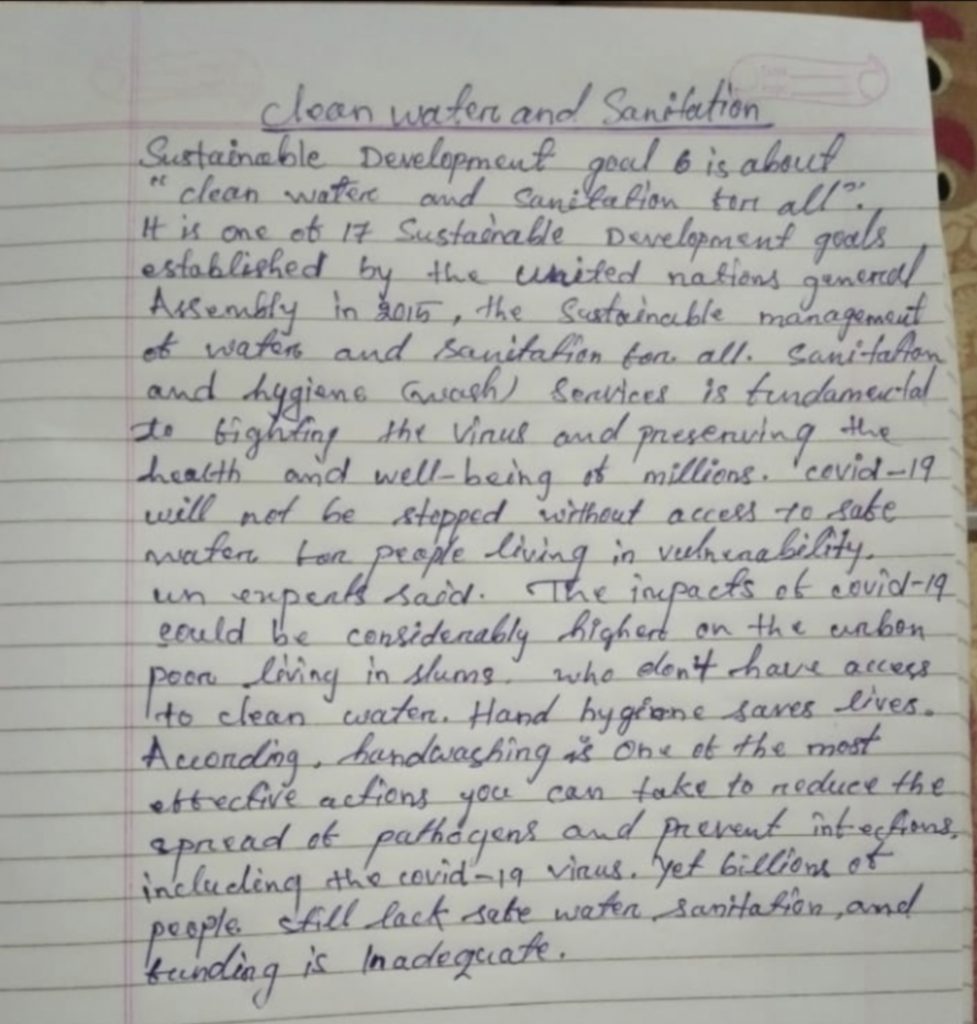 clean water and Sanitation
Sustainable Development goal 6 is about
"clean water and Sanitation for all".
It is one of 17 Sustainable Development goals,
established by the united nations general
Assembly in 2015, the Sustainable management
of water and sanitation for all. Sanitation
and hygiene (wash) Services is fundamental
to fighting the virus and preserving the
health and well-being of millions. 'covid-19
will not be stopped without access to safe
water for people living in vulnerability.
un experts said. The impacts of covid-19
could be considerably higher on the urban
poor living in slums. who don't have access
to clean water. Hand hygiene saves lives.
According, handwashing is One of the most
effective actions you can take to reduce the
spread of pathogens and prevent infections,
including the covid-19 virus. Yet billions of
people still lack safe water, sanitation, and
funding is Inadequate.